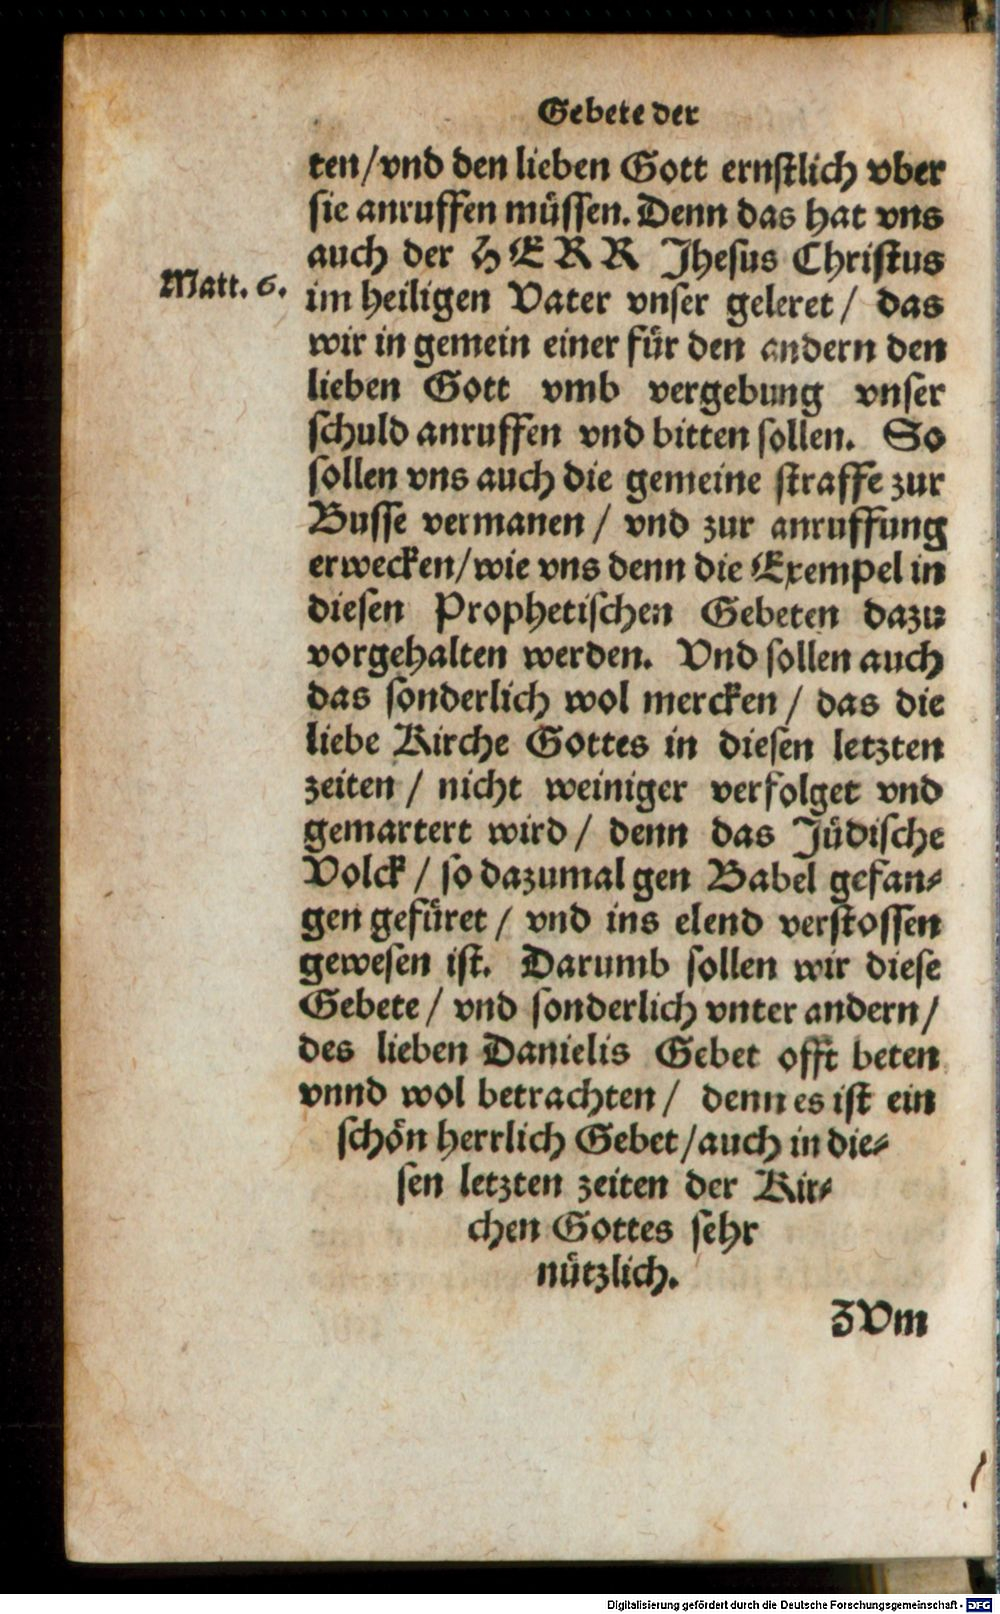 Gebete der
ten/vnd den lieben Gott ernstlich vber
sie anruffen müssen. Denn das hat vns
auch der HERR Jhesus Christus
Matt. 6.
im heiligen Vater vnser geleret / das
wir in gemein einer für den andern den
lieben Gott vmb vergebung vnser
schuld anruffen vnd bitten sollen. So
sollen vns auch die gemeine straffe zur
Busse vermanen / vnd zur anruffung
erwecken/wie vns denn die Exempel in
diesen Prophetischen Gebeten dazu
vorgehalten werden. Vnd sollen auch
das sonderlich wol mercken / das die
liebe Kirche Gottes in diesen letzten
zeiten / nicht weiniger verfolget vnd
gemartert wird / denn das Jüdische
Volck / so dazumal gen Babel gefan-
gen gefüret / vnd ins elend verstossen
gewesen ist. Darumb sollen wir diese
Gebete / vnd sonderlich vnter andern /
des lieben Danielis Gebet offt beten
vnnd wol betrachten / denn es ist ein
schön herrlich Gebet/auch in die-
sen letzten zeiten der Kir-
chen Gottes sehr
nützlich.
ZVm
Digitalisierung gefördert durch die Deutsche Forschungsgemeinschaft - DFG